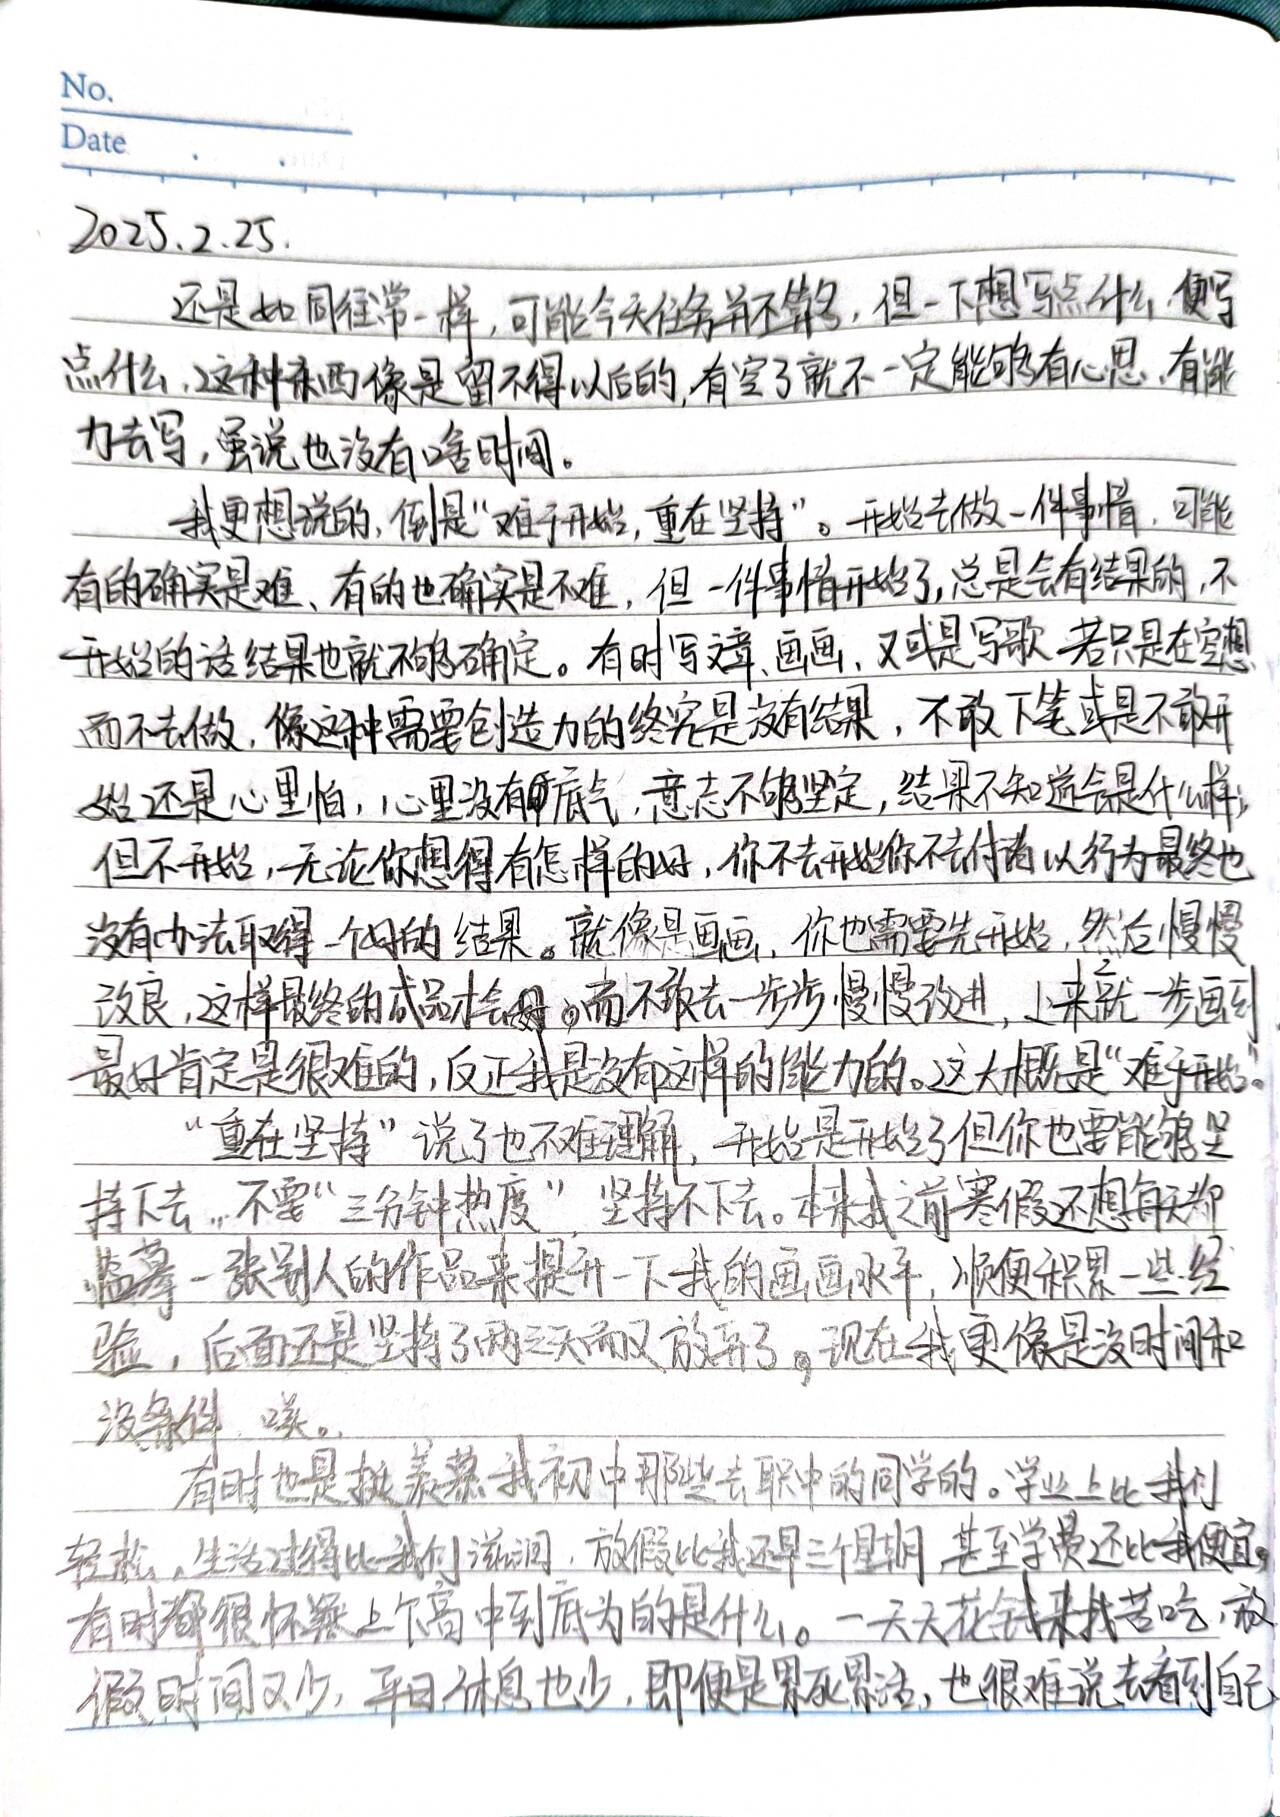 No.
Date
2025.2.25.
还是如同往常一样，可能今天任务并不算多，但一下想写点什么，便写
点什么，这种东西像是留不得以后的，有空了就不一定能够有心思、有能
力去写，虽说也没有啥时间。
我更想说的，倒是“难于开始，重在坚持”。开始去做一件事情，可能
有的确实是难、有的也确实是不难，但一件事情开始了，总是会有结果的，不
开始的话结果也就不够确定。有时写文章、画画、又或是写歌 若只是在空想
而不去做，像这种需要创造力的终究是没有结果，不敢下笔或是不敢开
始还是心里怕，心里没有底气，意志不够坚定，结果不知道会是什么样，
但不开始，无论你想得有怎样的好，你不去开始你不去付诸以行为最终也
没有办法取得一个好的结果。就像是画画，你也需要先开始，然后慢慢
改良，这样最终的成品才会好。而不敢去一步步慢慢改进，上来就一步画到
最好肯定是很难的，反正我是没有这样的能力的。这大概是“难于开始”。
“重在坚持”说了也不难理解，开始是开始了但你也要能够坚
持下去，不要“三分钟热度”，坚持不下去。本来我之前寒假还想每天都
临摹一张别人的作品来提升一下我的画画水平，顺便积累一些经
验，后面还是坚持了两三天而又放弃了。现在我更像是没时间和
没条件，唉。
有时也是挺羡慕我初中那些去职中的同学的。学业上比我们
轻松，生活过得比我们滋润，放假比我还早三个星期，甚至学费还比我便宜。
有时都很怀疑上个高中到底为的是什么。一天天花钱来找苦吃，放
假时间又少，平日休息也少，即便是累死累活，也很难说去看到自己